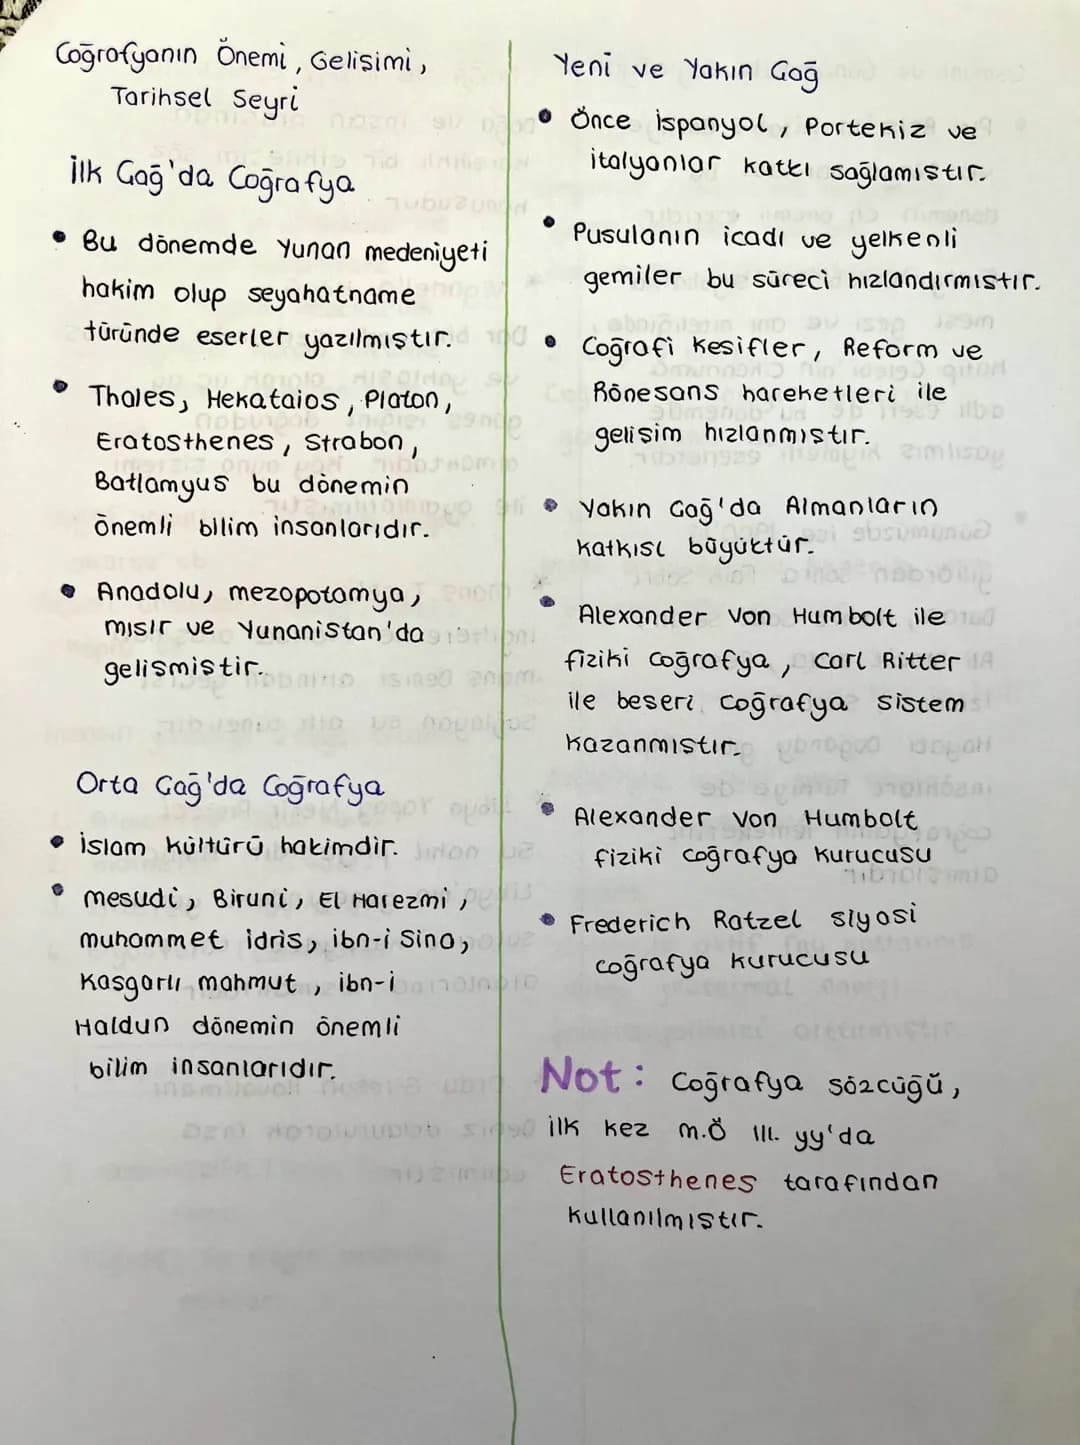 Coğrafyanın Önemi, Gelişimi,
Tarihsel Seyri
İlk Çağ'da Coğrafya
• Bu dönemde Yunan medeniyeti
hakim olup seyahatname
türünde eserler yazılmıştır.
• Thales, Hekataios, Platon,
Eratosthenes, Strabon,
Batlamyus bu dönemin
önemli bilim insanlarıdır.
• Anadolu, mezopotamya,
mısır ve Yunanistan'da
gelişmiştir.
Orta Çağ'da Coğrafya
• İslam kültürü hakimdir.
• mesudi, Biruni, El Harezmi,
muhammet idris, ibn-i Sina,
Kaşgarlı mahmut, ibn-i
Haldun dönemin önemli
bilim insanlarıdır.
Yeni ve Yakın Çağ
• Önce İspanyol, Portekiz ve
italyanlar katkı sağlamıştır.
• Pusulanın icadı ve yelkenli
gemiler bu süreci hızlandırmıştır.
• Coğrafi Keşifler, Reform ve
Rönesans hareketleri ile
gelişim hızlanmıştır.
• Yakın Çağ'da Almanların
katkısı büyüktür.
• Alexander Von Humbolt ile
fiziki coğrafya, Carl Ritter
ile beşeri coğrafya sistem
kazanmıştır.
• Alexander Von Humbolt
fiziki coğrafya kurucusu
• Frederich Ratzel siyasi
coğrafya kurucusu
Not: Coğrafya sözcüğü,
ilk kez m.Ö III. yy'da
Eratosthenes tarafından
kullanılmıştır.